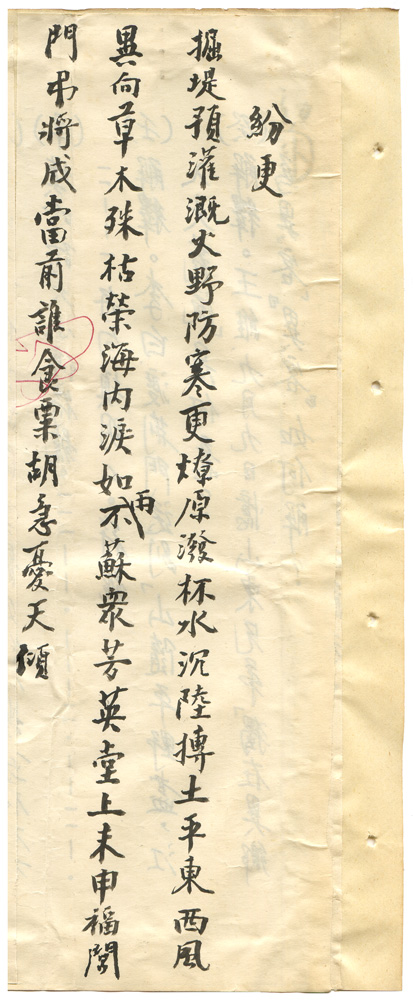 紛更
掘堤預灌溉火野防寒更燎原潑杯水沉陸摶土平東西風
異向草木殊枯榮海內淚如雨不蘇眾芳英堂上未申福
門弔將成當前誰食粟胡急憂天傾